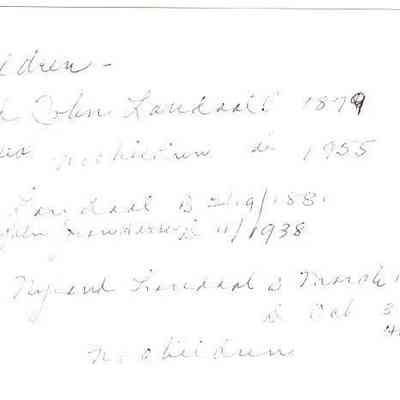 ildren -
John Landaal 1879
no children d. 1955
Landaal B 2/19/188
D 11/1938
Nyland Landaal B March 1
D Oct 3
no children